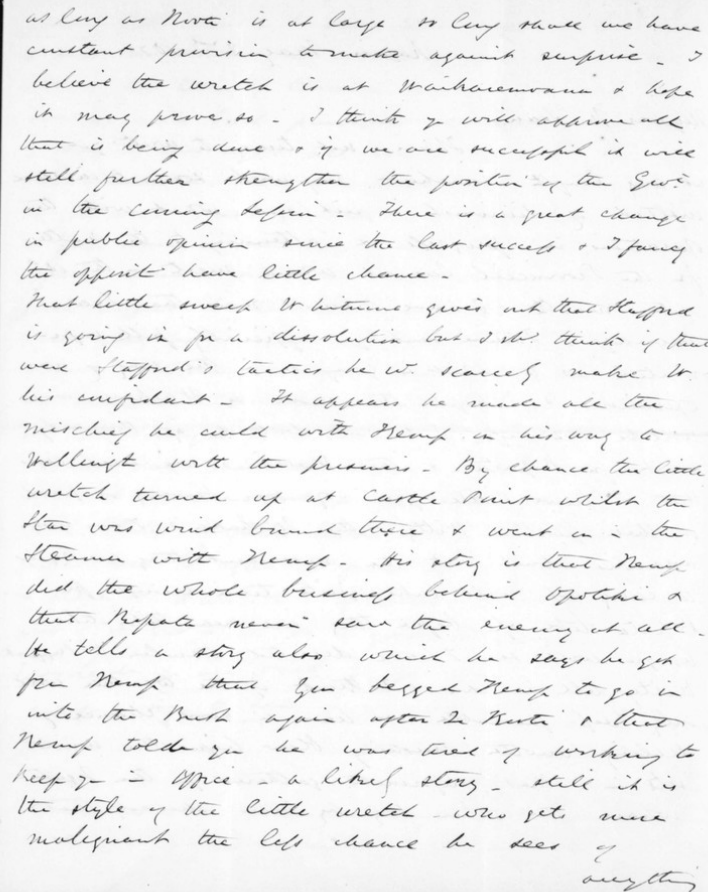 as long as Kooti is at large so long shall we have
constant provision to make against surprise - I
believe the wretch is at Waikaremoana & hope
it may prove so - I think yo will approve all
that is being done & if we are successful it will
still further strengthen the position of the Govt.
in the coming Session - There is a great change
in public opinion since the last success & I fancy
the opposit have little chance -
That little sweep W gives out that Stafford
is going in for a dissolution but I shd. think if that
were Stafford's tactics he wd. scarcely make W.
his confidant - It appears he made all the
mischief he could with Kemp on his way to
Wellingt with the prisoners - By chance the little
wretch turned up at Castle Point whilst the
Star was wind bound there & went on in the
Steamer with Kemp - His story is that Kemp
did the whole business behind Opotiki &
that Ropata never saw the enemy at all -
He tells a story also which he says he got
from Kemp that you begged Kemp to go in
into the Bush again after Te Kooti & that
Kemp told you he was tired of working to
keep yo in office - a likely story - still it is
the style of the little wretch - who gets more
malignant the less chance he sees of
anything